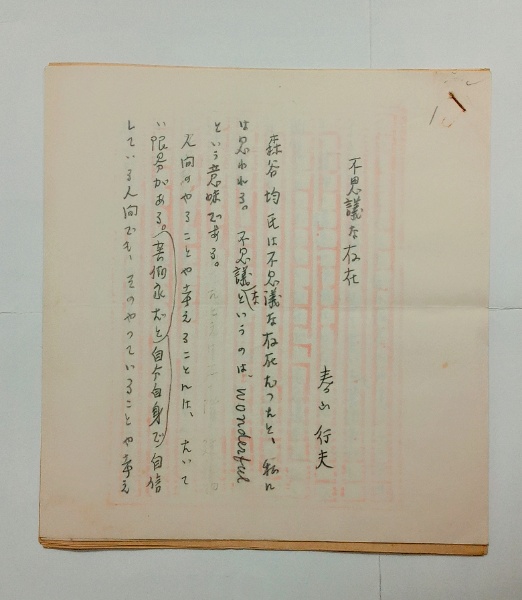 1
不思議な存在
春山行夫
森谷均氏は不思議な存在だつたと、私に
は思われる。不思議なというのは、wonderful
という意味である。
人間のやることや考えることには、たいて
い限界がある。芸術家だと自分自身で自信
している人間でも、そのやつていることや考え